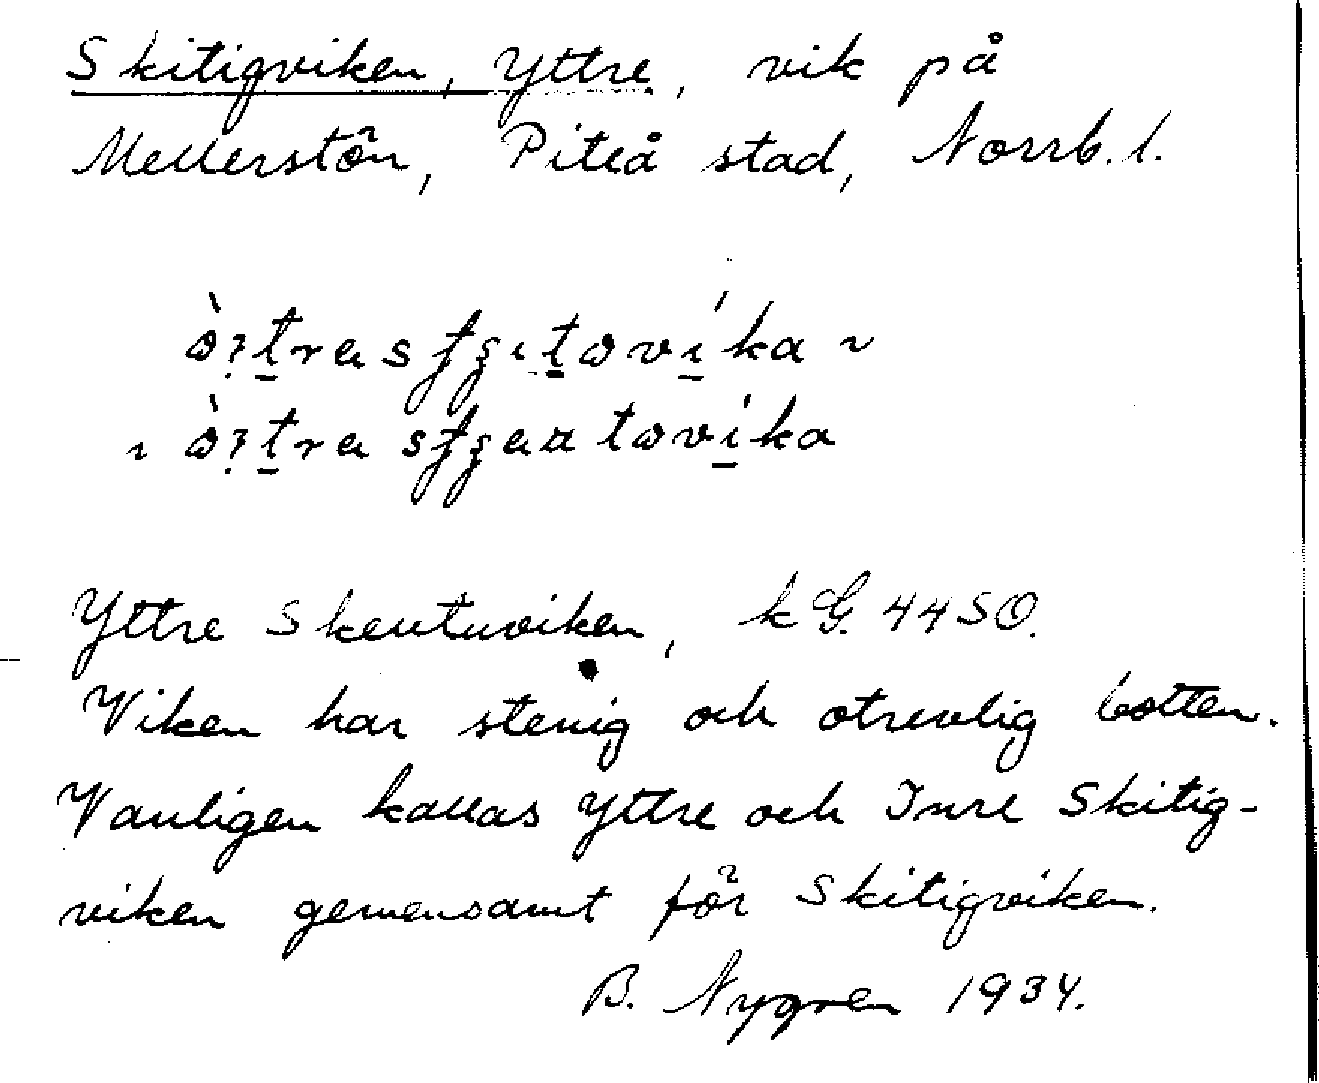 Skitigviken, Yttre, vik på
Mellerstön, Piteå stad, Norrb. l.
Yttre Skentuviken, kG. 44 SO.
Viken har stenig och otrevlig botten.
Vanligen kallas Yttre och Inre Skitig-
viken gemensamt för Skitigviken.
B. Nygren 1934.